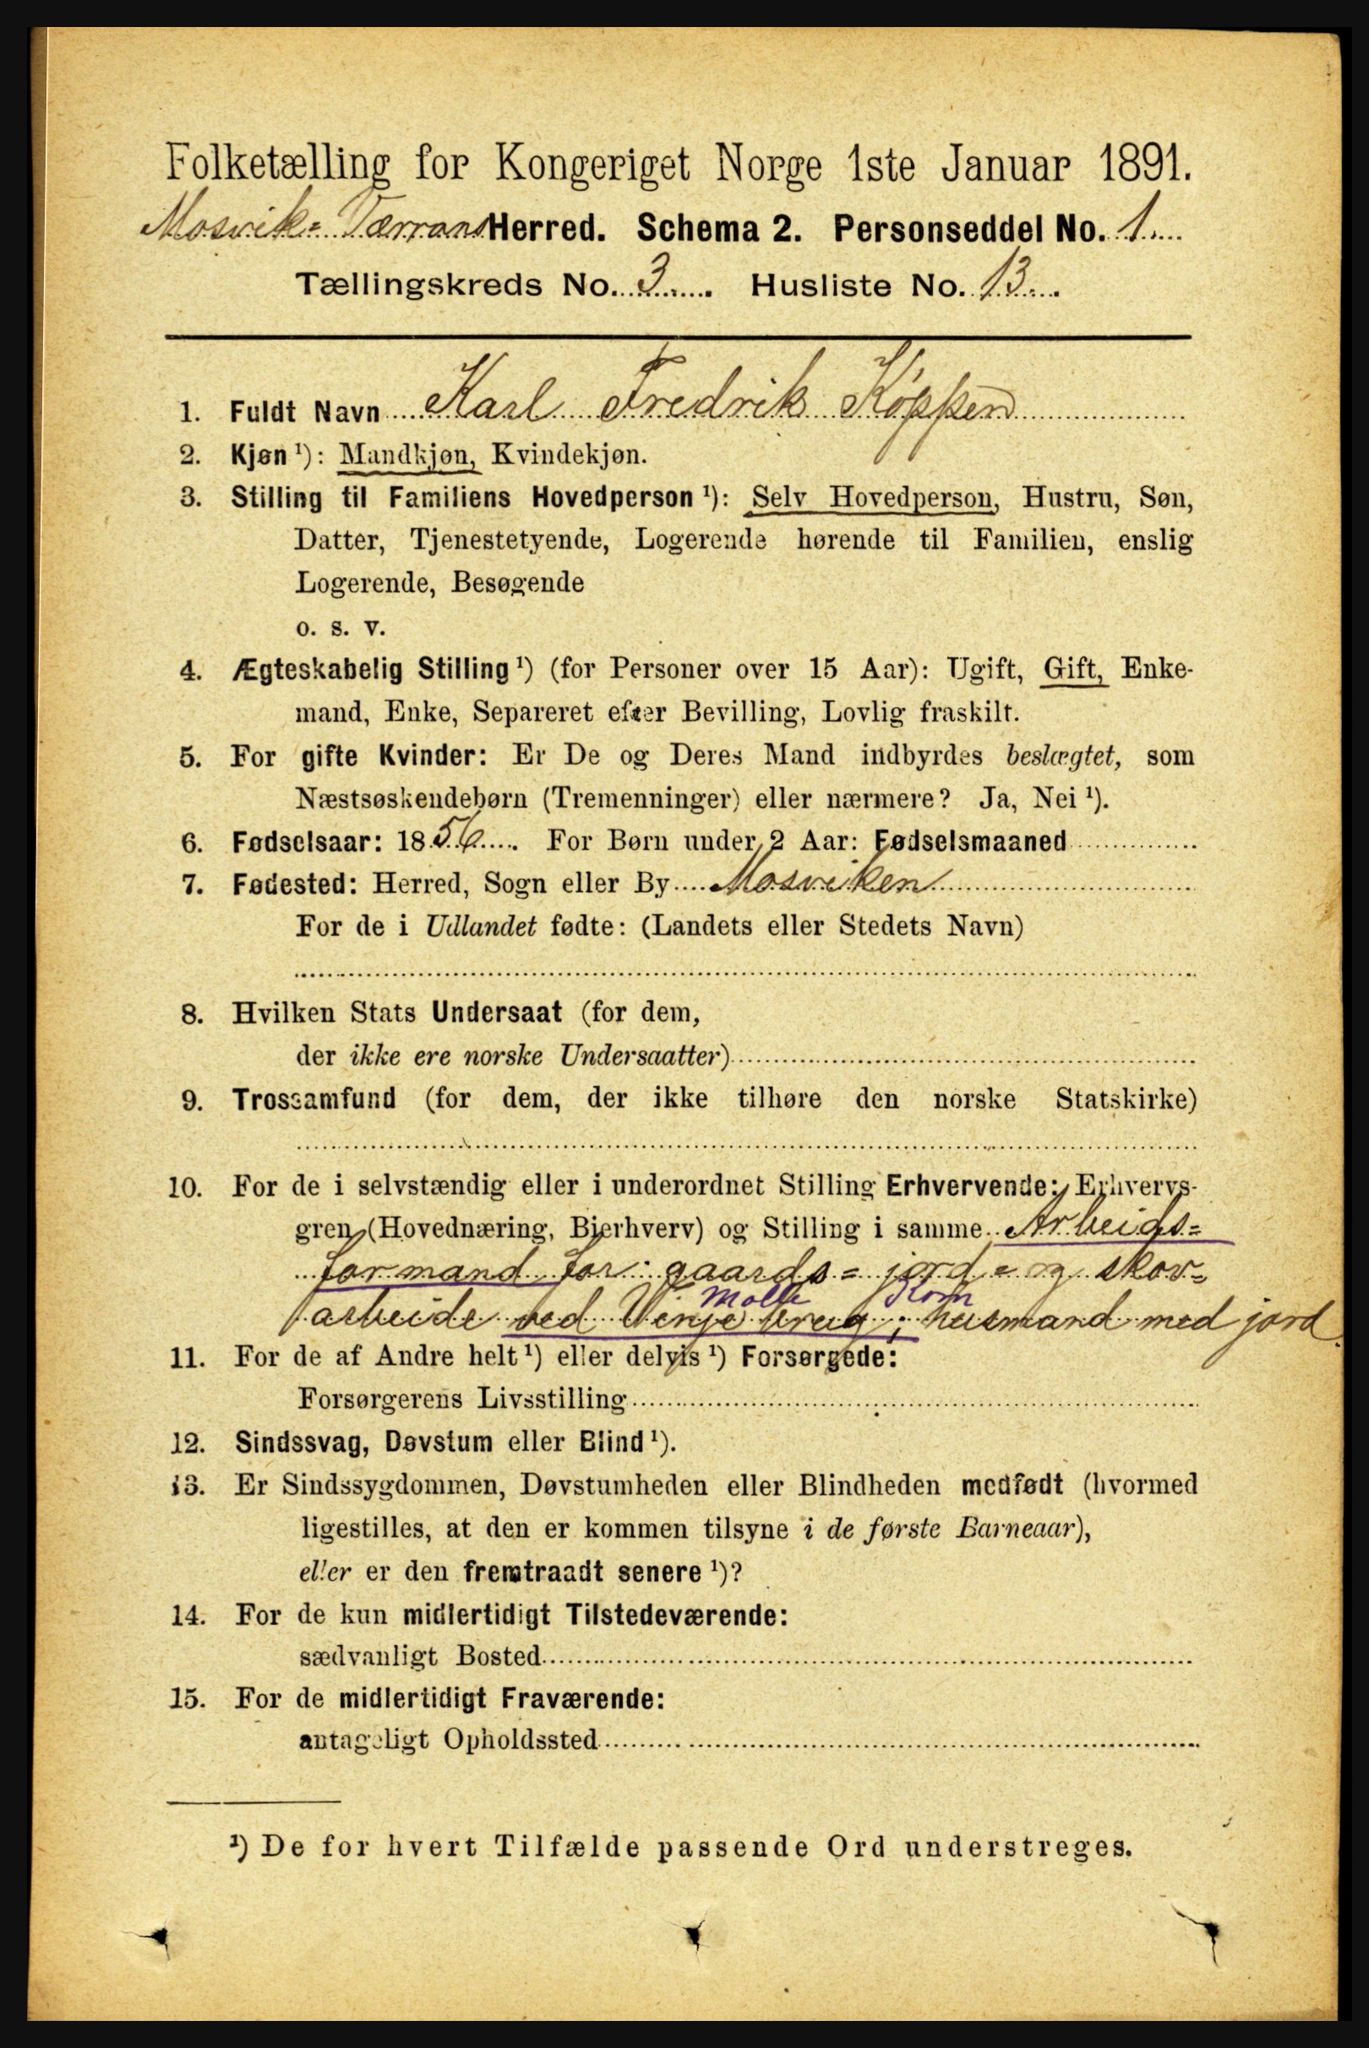 Folketælling for Kongeriget Norge 1ste Januar 1891.
Mosvik= Værrans Herred. Schema 2. Personseddel No. 1
Tællingskreds No. 3. Husliste No. 13.
1. Fuldt Navn Karl Fredrik Køppen
2. Kjøn ¹): Mandkjøn, Kvindekjøn.
3. Stilling til Familiens Hovedperson ¹): Selv Hovedperson, Hustru, Søn,
Datter, Tjenestetyende, Logerende hørende til Familien, enslig
Logerende, Besøgende
o. s. v.
4. Ægteskabelig Stilling ¹) (for Personer over 15 Aar): Ugift, Gift, Enke-
mand, Enke, Separeret efter Bevilling, Lovlig fraskilt.
5. For gifte Kvinder: Er De og Deres Mand indbyrdes beslægtet, som
Næstsøskendebørn (Tremenninger) eller nærmere? Ja, Nei ¹).
6. Fødselsaar: 1856. For Børn under 2 Aar: Fødselsmaaned
7. Fødested: Herred, Sogn eller By Mosviken
For de i Udlandet fødte: (Landets eller Stedets Navn)
8. Hvilken Stats Undersaat (for dem,
der ikke ere norske Undersaatter)
9. Trossamfund (for dem, der ikke tilhøre den norske Statskirke)
10. For de i selvstændig eller i underordnet Stilling Erhvervende: Erhvervs-
gren (Hovednæring, Bierhverv) og Stilling i samme Arbeids=
formand for gaards= jord= og skov=
Molle Korn
arbeide ved Venje brug; husmand med jord.
11. For de af Andre helt ¹) eller delvis ¹) Forsørgede:
Forsørgerens Livsstilling
12. Sindssvag, Døvstum eller Blind ¹).
13. Er Sindssygdommen, Døvstumheden eller Blindheden medfødt (hvormed
ligestilles, at den er kommen tilsyne i de første Barneaar),
eller er den fremtraadt senere ¹)?
14. For de kun midlertidigt Tilstedeværende:
sædvanligt Bosted
15. For de midlertidigt Fraværende:
antageligt Opholdssted
¹) De for hvert Tilfælde passende Ord understreges.